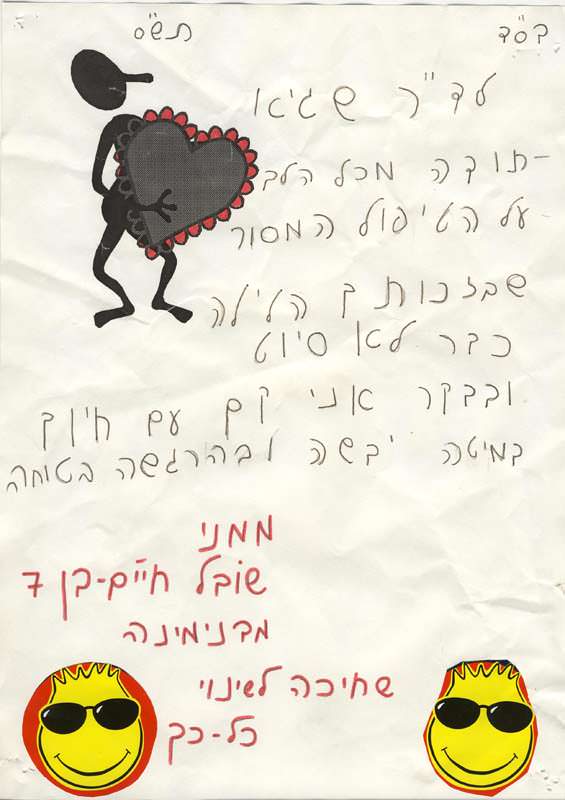 בס"ד תש"ס
לד"ר שגיא
תודה מכל הלב
על הטיפול המסור
שבזכותך הלילה
כבר לא סיוט
ובבקר אני קם עם חיוך
במיטה יבשה ובהרגשה בטוחה
ממני
שובל חיים-בן 7
מבנימינה
שחיכה לשינוי
כל-כך